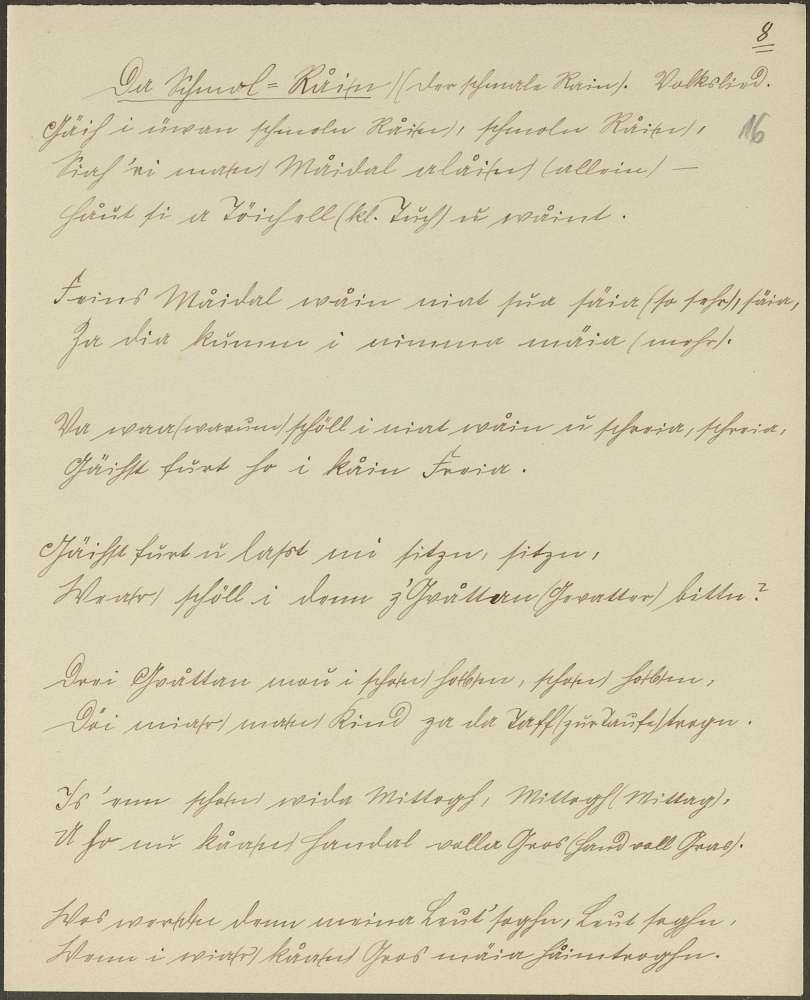 8
Da Schmol-Råi(n) (der schmale Rain). Volkslied.
Gäih i üwan schmoln Råi(n), schmoln Råi(n), 16
Siah 'ri ma(n) Måidal alåi(n) (allein) —
Håut si a Töichell (kl. Tuch) u wåint.
Feins Måidal wåin niat sua säia (so sehr), säia,
Za dia kumm i nimma mäia (mehr).
Va waa (warum) schöll i niat wåin u schreia, schreia,
Gäihst furt ho i kåin Freia.
Gäihst furt u lasst mi sitzn, sitzn,
Wea(r) schöll i denn z'Gvåttan (Gevatter) bittn?
Drei Gvåttan mou i scho(n) ho(b)m, scho(n) ho(b)m,
Döi mia(r) ma(n) Kind za da Taff (zur Taufe) trogn.
Is 'enn scho(n) wida Mittogh, Mittogh (Mittag),
U ho nu kåa(n) Handal volla Gros (Hand voll Gras).
Wos wer(d)n denn meina Leut' soghn, Leut soghn,
Wenn i wia(r) kåa(n) Gros mäia håimtroghn.